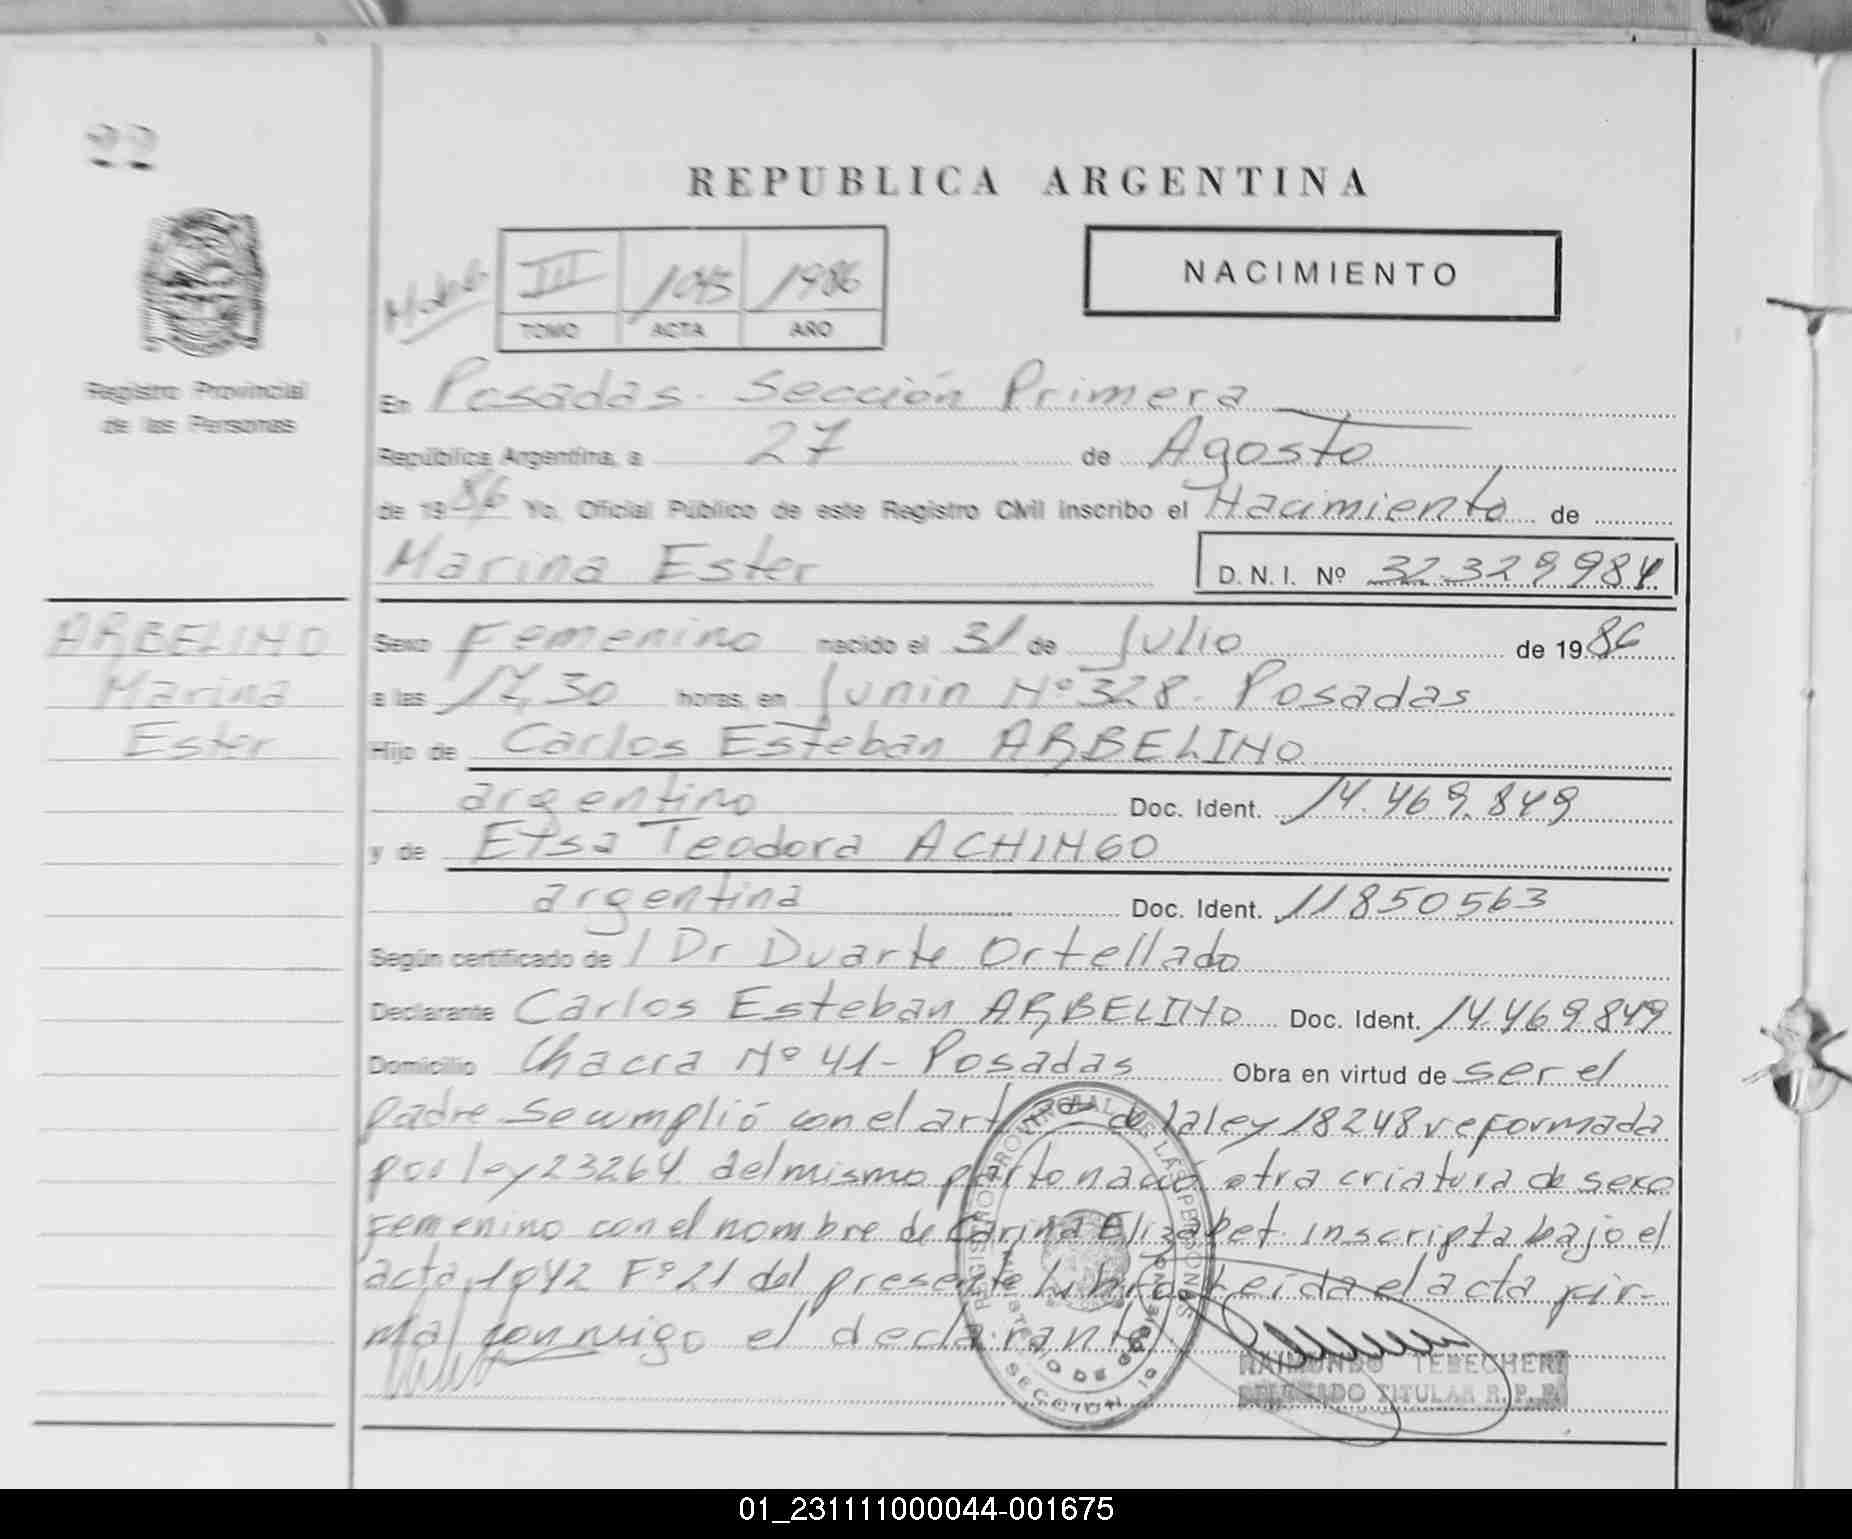 22
REPUBLICA ARGENTINA
NACIMIENTO
III 1043 1986
TOMO ACTA AÑO
Registro Provincial
de las Personas
En Posadas. Sección Primera
República Argentina, a 27 de Agosto
de 1986 Yo, Oficial Público de este Registro Civil inscribo el Nacimiento de
Marina Ester D.N.I. Nº 32.329984
ARBELINO
Marina
Ester
Sexo Femenino nacido el 31 de Julio de 1986
a las 17,30 horas, en Junin Nº 328. Posadas
Hijo de Carlos Esteban ARBELINO
argentino Doc. Ident. 14.469.849
y de Elsa Teodora ACHINGO
argentina Doc. Ident. 11850563
Según certificado de / Dr Duarte Ortellado
Declarante Carlos Esteban ARBELINO Doc. Ident. 14.469849
Domicilio Chacra Nº 41 - Posadas Obra en virtud de ser el
padre Se cumplió con el art de la ley 18248 reformada
por ley 23264 del mismo parto nació otra criatura de sexo
Femenino con el nombre de Carina Elizabet. inscripta bajo el
acta 1042 Fº 21 del presente Libro Leída el acta fir-
ma conmigo el declarante
REGISTRO PROVINCIAL DE LAS PERSONAS
MINISTERIO DE GOBIERNO
SECCION 1a
RAIMUNDO TEBECHERI
DELEGADO TITULAR R.P.P.
01_231111000044-001675